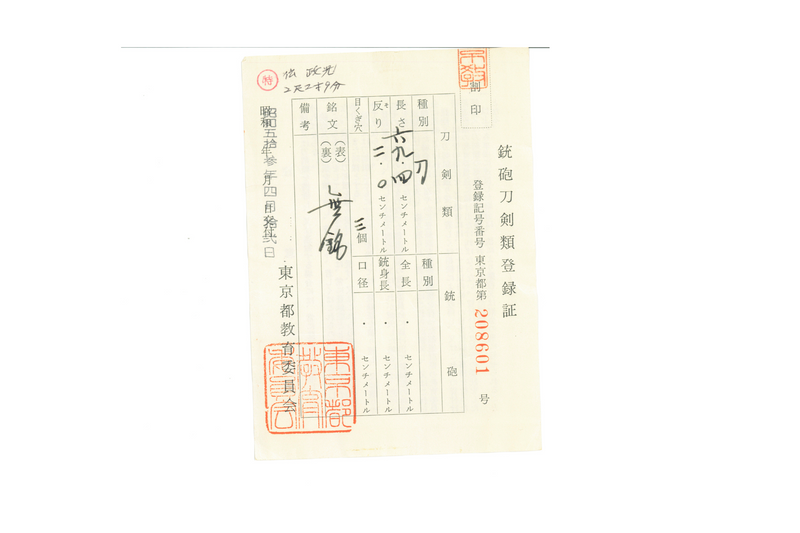 銃砲刀剣類登録証
割印
登録記号番号 東京都第 208601 号
刀剣類
銃砲
種別 刀
種別
長さ 六九・四 センチメートル
全長 ・ センチメートル
反り 二・〇 センチメートル
銃身長 ・ センチメートル
目くぎ穴 三個
口径 ・ センチメートル
銘文 (表) (裏) 無銘
備考
昭和五拾参年四月拾弐日
東京都教育委員会
特
伝 政光
2尺2寸9分
東京都教育委員会